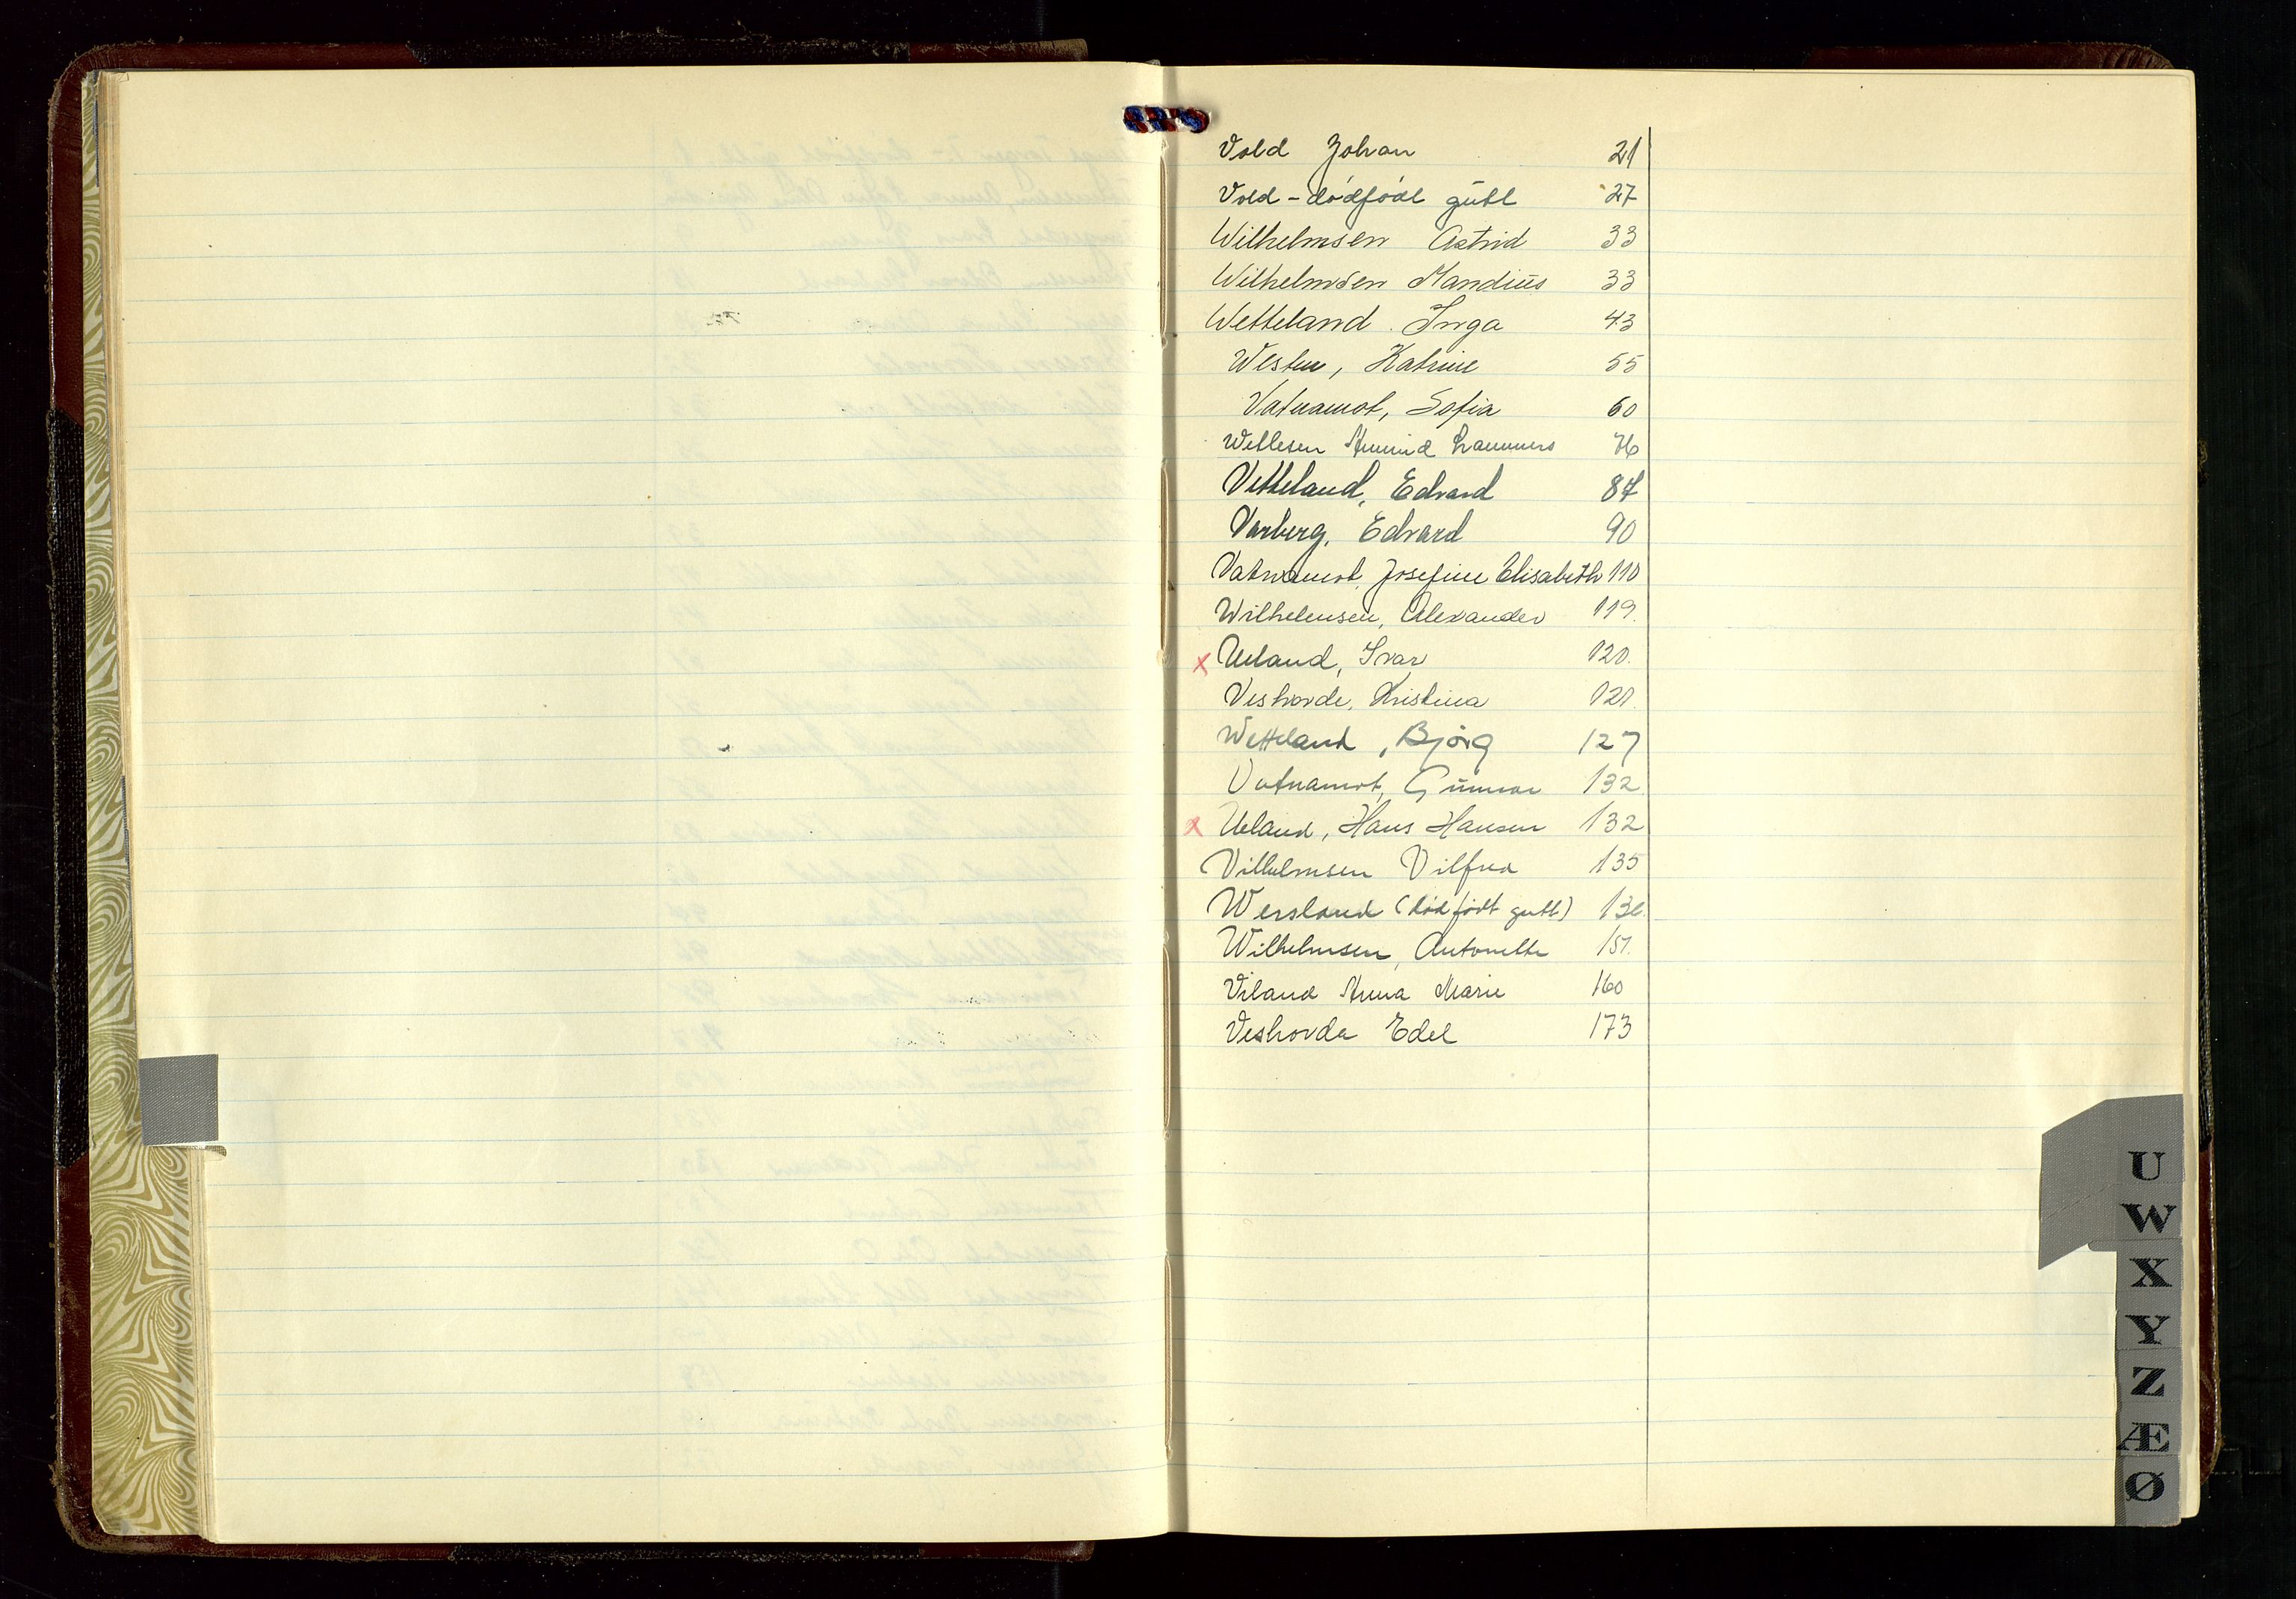 Vold Johan 21
Vold - dödfödt gutt 27
Wilhelmsen Astrid 33
Wilhelmsen Mandius 33
Wetteland Inga 43
Westen, Katrine 55
Vatnamot, Sofia 60
Wetlesen Amund Lammers 76
Vetteland, Edvard 87
Varberg, Edvard 90
Vatnamot, Josefine Elisabeth 110
Wilhelmsen, Alexander 119.
x Ueland, Ivar 120.
Veshovde, Kristina 121.
Wetteland, Björg 127
Vatnamot, Gunnar 132
x Ueland, Hans Hansen 132
Vilhelmsen Vilfred 135
Wersland (dödfödt gutt)
Wilhelmsen, Antonette 151.
Viland Anna Marie 160
Veshovda Edel 173
U
W
X
Y
Z
Æ
Ø